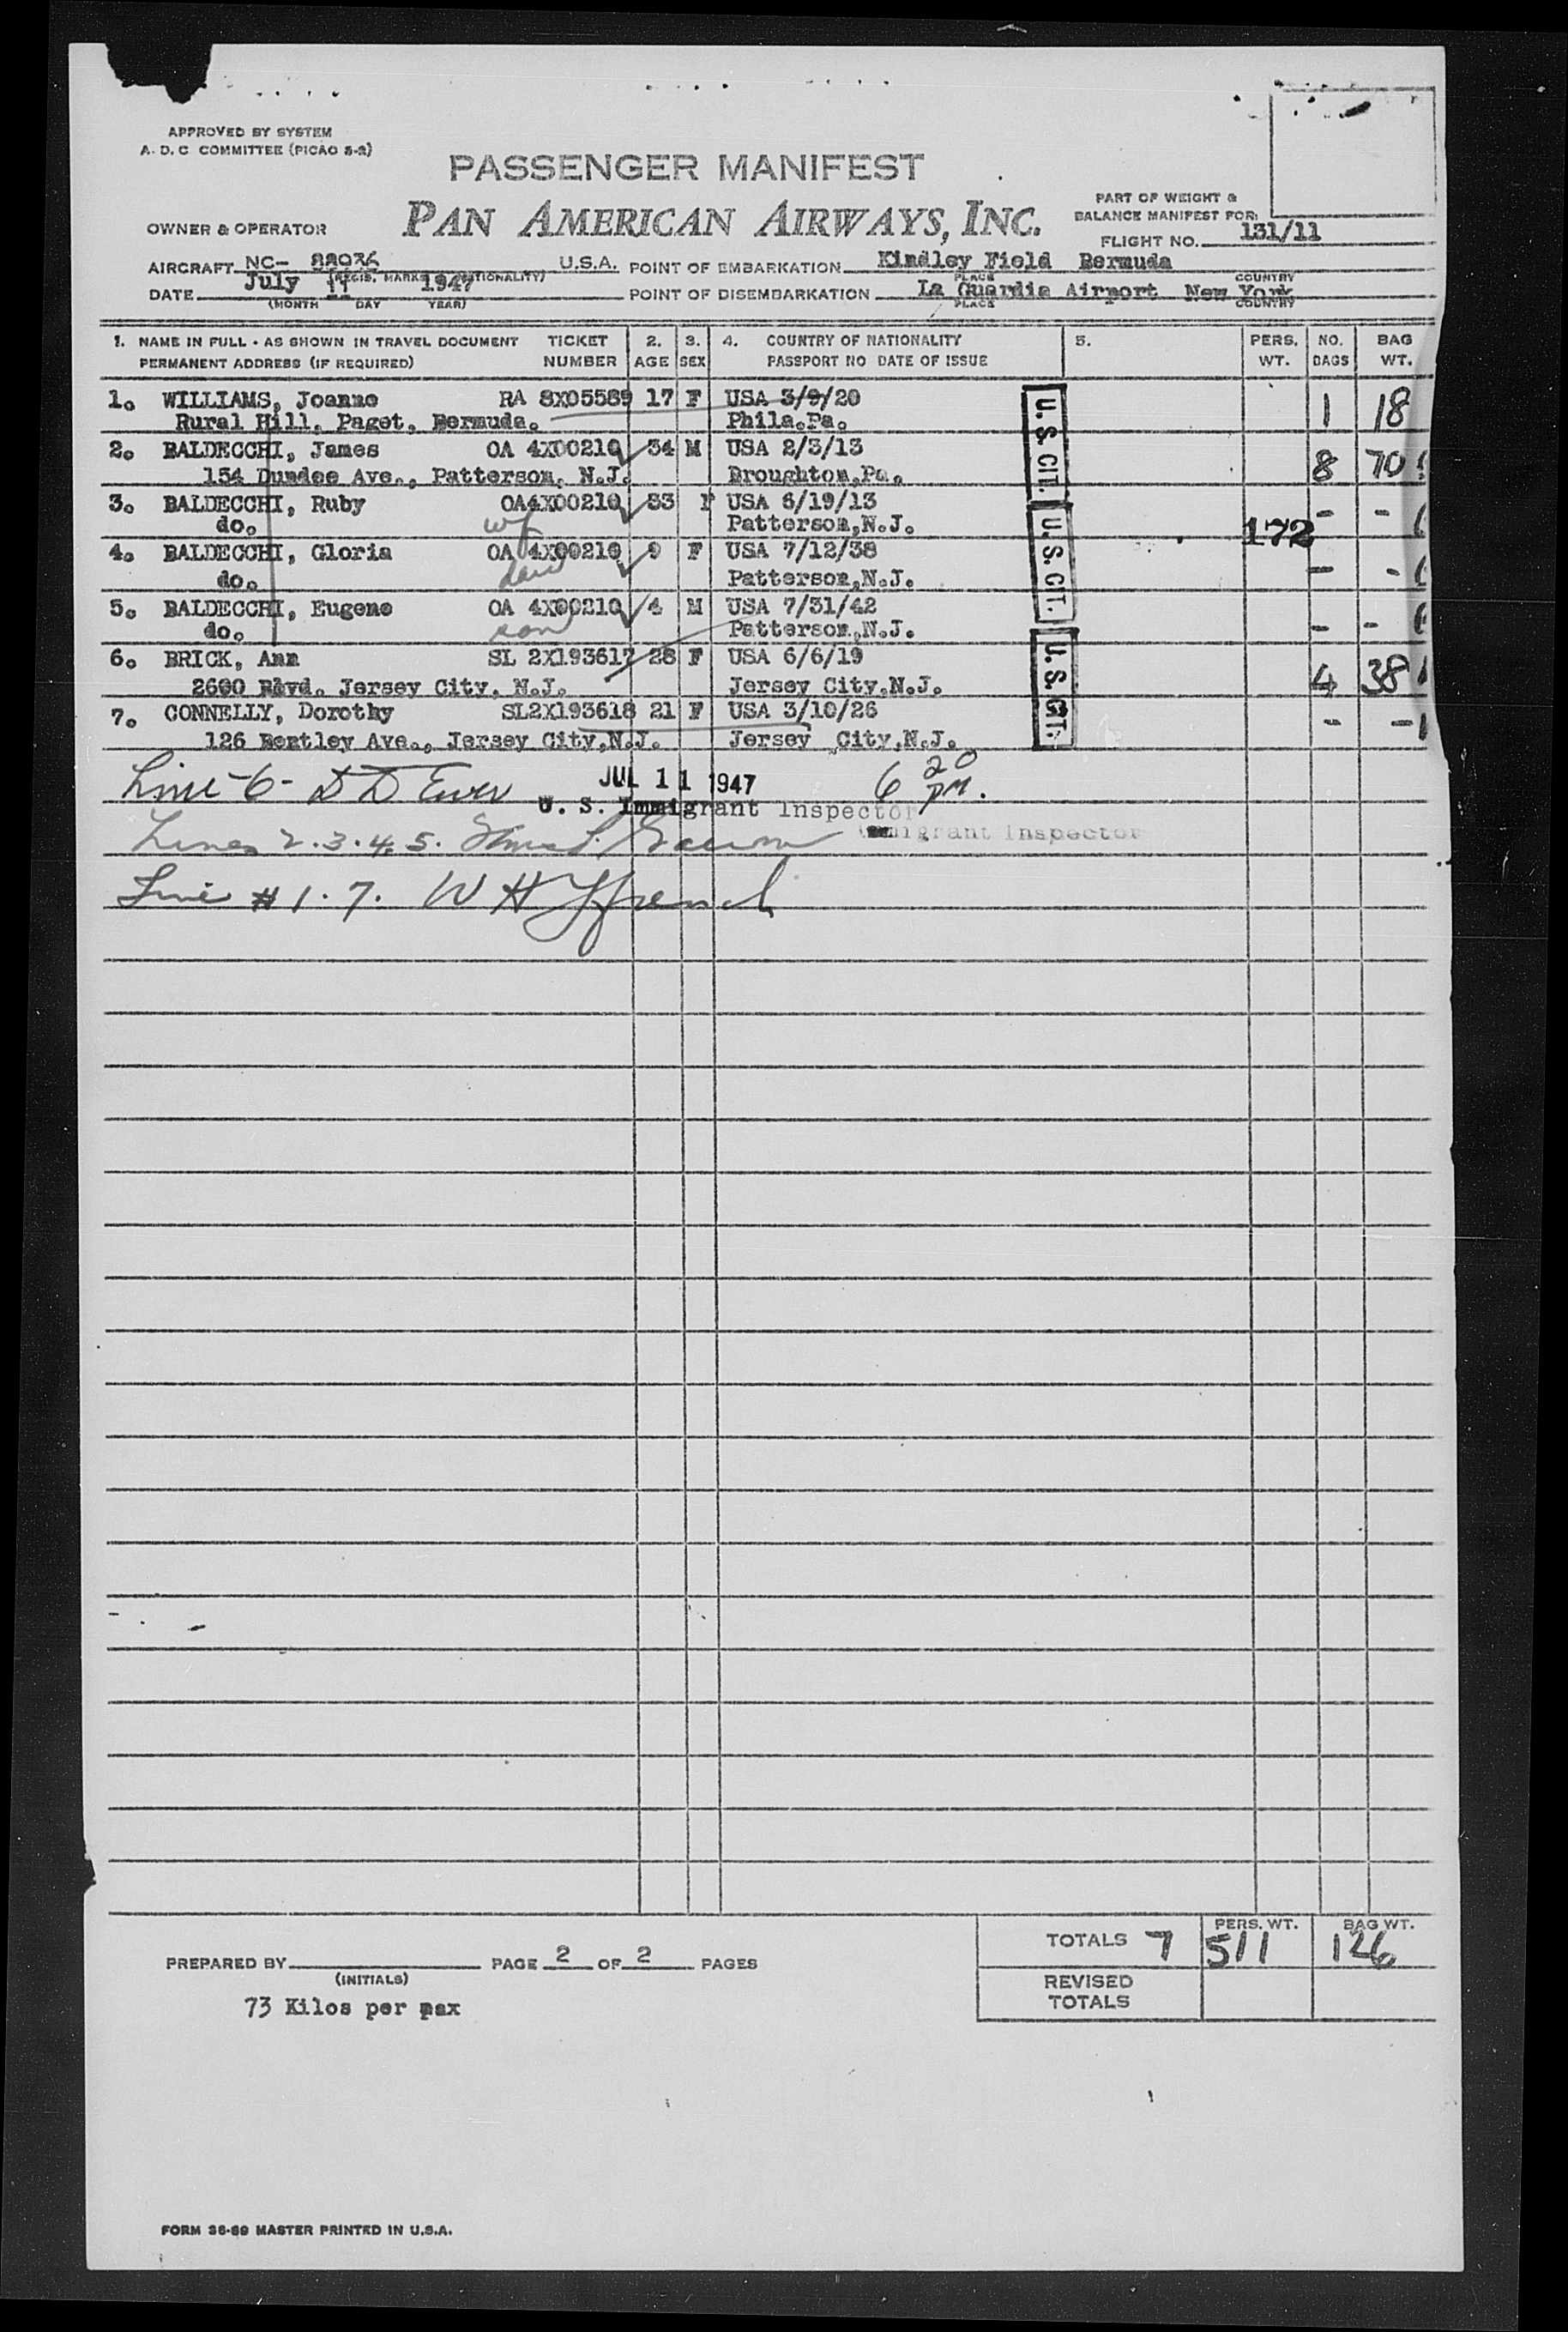 APPROVED BY SYSTEM
A. D. C COMMITTEE (PICAO 8-2)
PASSENGER MANIFEST
PAN AMERICAN AIRWAYS, INC.
OWNER & OPERATOR
PART OF WEIGHT &
BALANCE MANIFEST FOR:
FLIGHT NO. 131/11
AIRCRAFT NC- 88036 U.S.A. POINT OF EMBARKATION Kindley Field Bermuda
(REGIS. MARK NATIONALITY) PLACE COUNTRY
DATE July 11 1947 POINT OF DISEMBARKATION La Guardia Airport New York
(MONTH DAY YEAR) PLACE COUNTRY
1. NAME IN FULL - AS SHOWN IN TRAVEL DOCUMENT TICKET 2. 3. 4. COUNTRY OF NATIONALITY 5. PERS. NO. BAG
PERMANENT ADDRESS (IF REQUIRED) NUMBER AGE SEX PASSPORT NO DATE OF ISSUE WT. BAGS WT.
1. WILLIAMS, Joanne RA 8X05589 17 F USA 3/9/20 U.S. CIT. 1 18
Rural Hill, Paget, Bermuda. Phila.Pa.
2. BALDECCHI, James OA 4X00210 34 M USA 2/3/13 8 70
154 Dundee Ave., Patterson, N.J. Broughton,Pa.
3. BALDECCHI, Ruby OA4X00210 33 F USA 6/19/13 - -
do. wf Patterson,N.J. U.S. CIT. 172
4. BALDECCHI, Gloria OA 4X00210 9 F USA 7/12/38 - -
do. dau Patterson,N.J.
5. BALDECCHI, Eugene OA 4X00210 4 M USA 7/31/42 - -
do. son Patterson,N.J.
6. BRICK, Ann SL 2X193617 28 F USA 6/6/19 U.S. CIT. 4 38
2600 Blvd. Jersey City, N.J. Jersey City,N.J.
7. CONNELLY, Dorothy SL2X193618 21 F USA 3/10/26 - -
126 Bentley Ave., Jersey City,N.J. Jersey City,N.J.
Line -6- JUL 11 1947 6 20 PM.
U. S. Immigrant Inspector
Immigrant Inspector
Lines 2.3.4.5.
Line # 1. 7. W H Ffrench
TOTALS 7 PERS. WT. 511 BAG WT. 126
PREPARED BY PAGE 2 OF 2 PAGES
(INITIALS)
REVISED
TOTALS
73 Kilos per pax
FORM 36-69 MASTER PRINTED IN U.S.A.